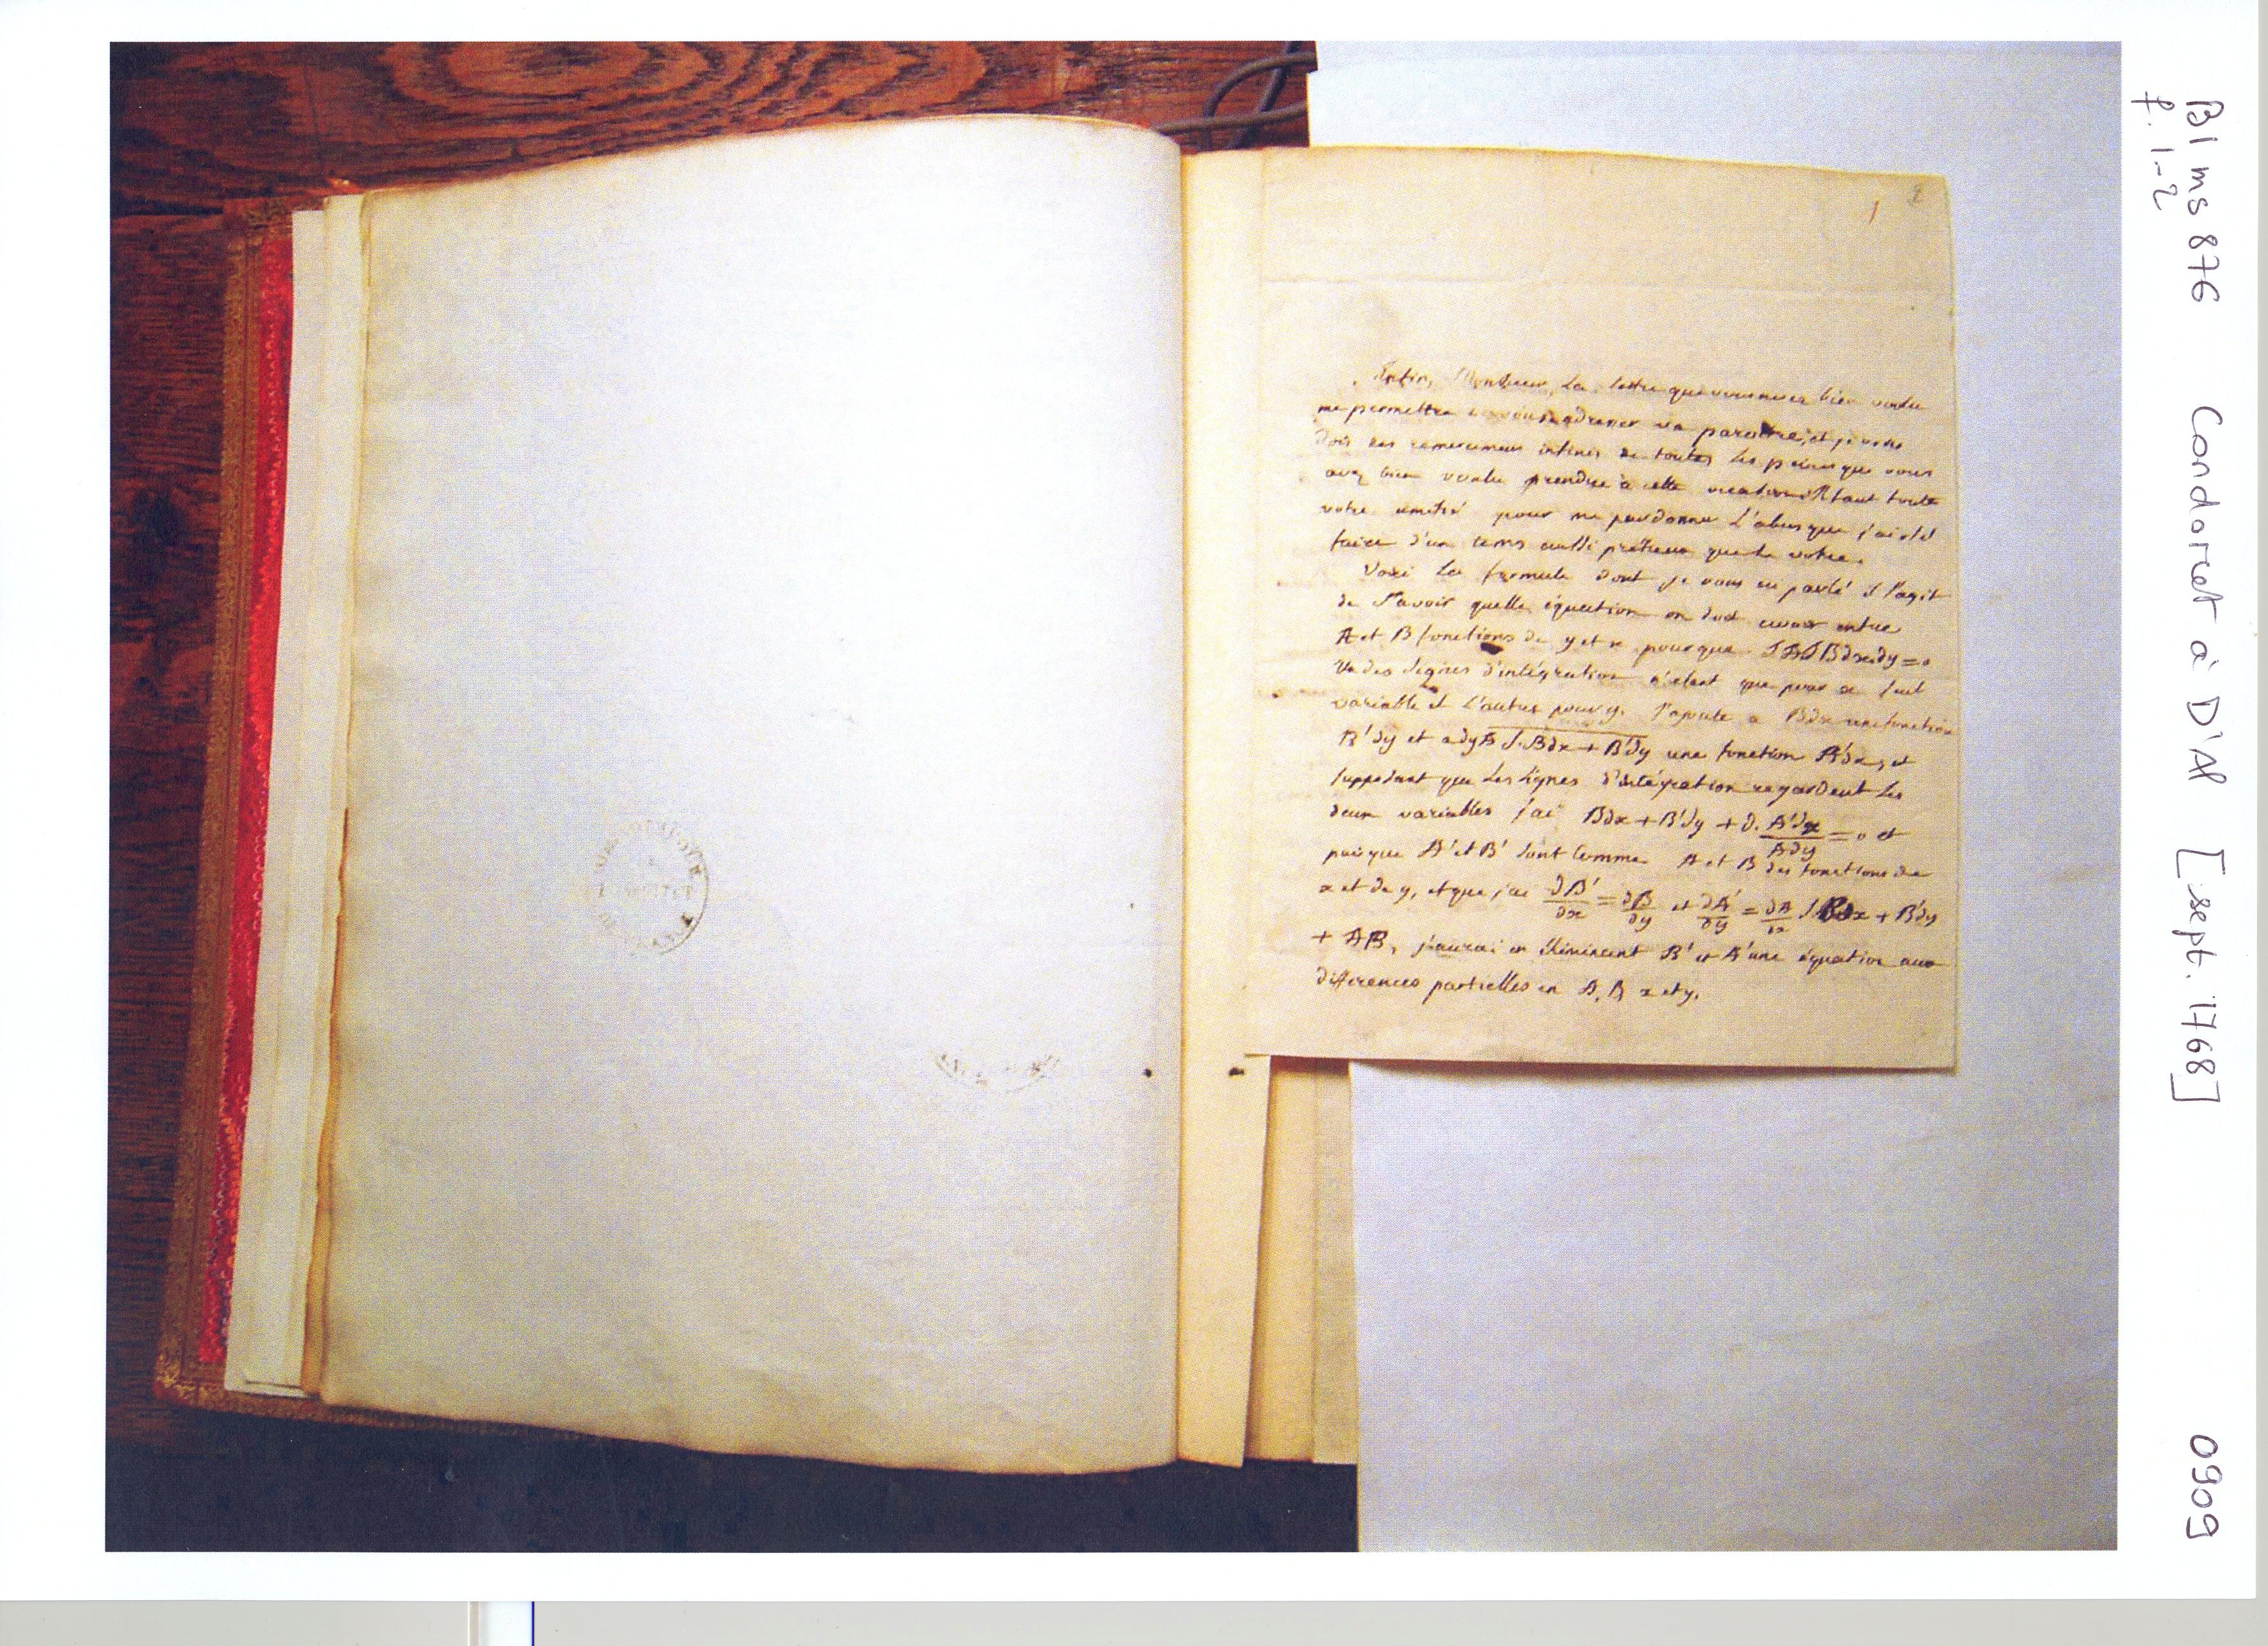 1 2
Enfin, Monsieur, la lettre que vous avez bien voulu
me permettre de vous adresser va paroitre, et je vous
dois des remercimens infinis de toutes les peines que vous
avez bien voulu prendre à cette occasion. Il faut toute
votre amitié pour me pardonner l'abus que j'ai osé
faire d'un tems aussi prétieux que le votre.
Voici la formule dont je vous ai parlé il s'agit
de sçavoir quelle équation on doit avoir entre
A et B fonctions de y et x pour que ∫A∫Bdxdy=0
Un des signes d'intégration n'étant que pour x seul
variable et l'autre pour y. J'ajoute a Bdx une fonction
B'dy et a dyA∫.Bdx+B'dy une fonction A'dx, et
supposant que les signes d'intégration regardent les
deux variables j'ai Bdx+B'dy+d.A'dx/Ady=0 et
puisque A' et B' sont comme A et B des fonctions de
x et de y, et que j'ai dB'/dx=dB/dy et dA'/dy=dA/dx∫Bdx+B'dy
+AB, j'aurai en éliminant B' et A' une équation aux
differences partielles en A, B x et y.
BI ms 876 Condorcet à D'Al [sept. 1768] 0909
f. 1-2